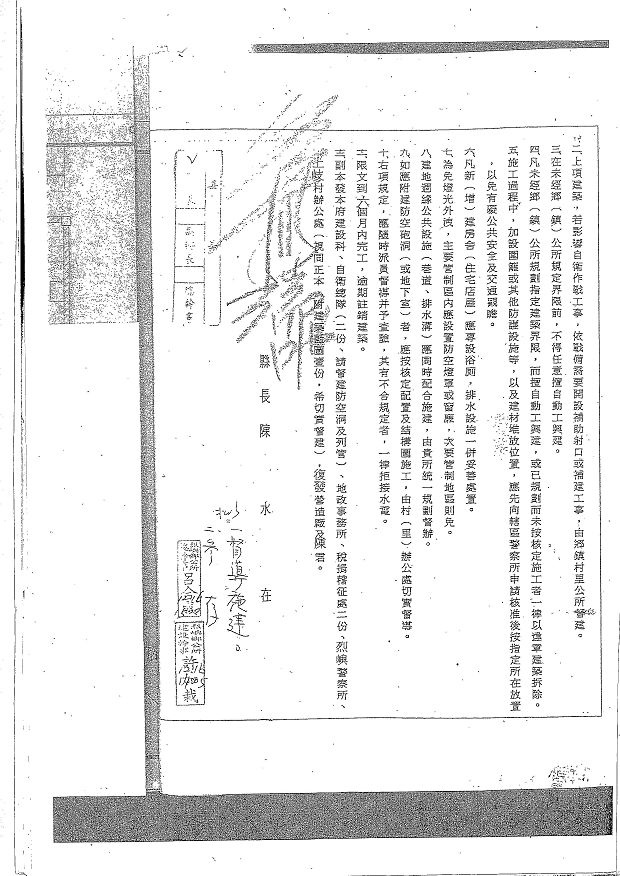 二上項建築，若影響自衛作戰工事，依戰備需要開設補助射口或補建工事，由鄉鎮村里公所督建。
三在未經鄉（鎮）公所規定界限前，不得任意擅自動工興建。
四凡未經鄉（鎮）公所規劃指定建築界限，而擅自動工興建，或已規劃而未按核定施工者一律以違章建築拆除。
五施工過程中，加設圍籬或其他防護設施等，以及建材堆放位置，應先向轄區警察所申請核准後按指定所在放置
，以免有礙公共安全及交通觀瞻。
六凡新（增）建房舍（住宅店屋）應專設浴廁，排水設施一併妥善處置。
七為免燈光外洩，主要管制區內應設置防空燈罩或窗簾，次要管制地區則免。
八建地週緣公共設施（巷道、排水溝）應同時配合施建，由貴所統一規劃督辦。
九如應附建防空砲洞（或地下室）者，應按核定配置及結構圖施工，由村（里）辦公處切實督導。
十右項規定，應隨時派員督導并予查驗，其有不合規定者，一律拒接水電。
二限文到六個月內完工，逾期註銷建築。
三副本發本府建設科、自衛總隊（二份、請督建防空洞及列管）、地政事務所、稅捐稽征處二份、烈嶼警察所、
上岐村辦公處（視同正本，附建築藍圖壹份，希切實督建），復發營造廠及陳君。
縣長陳水在
擬：一督導施建。
二、存